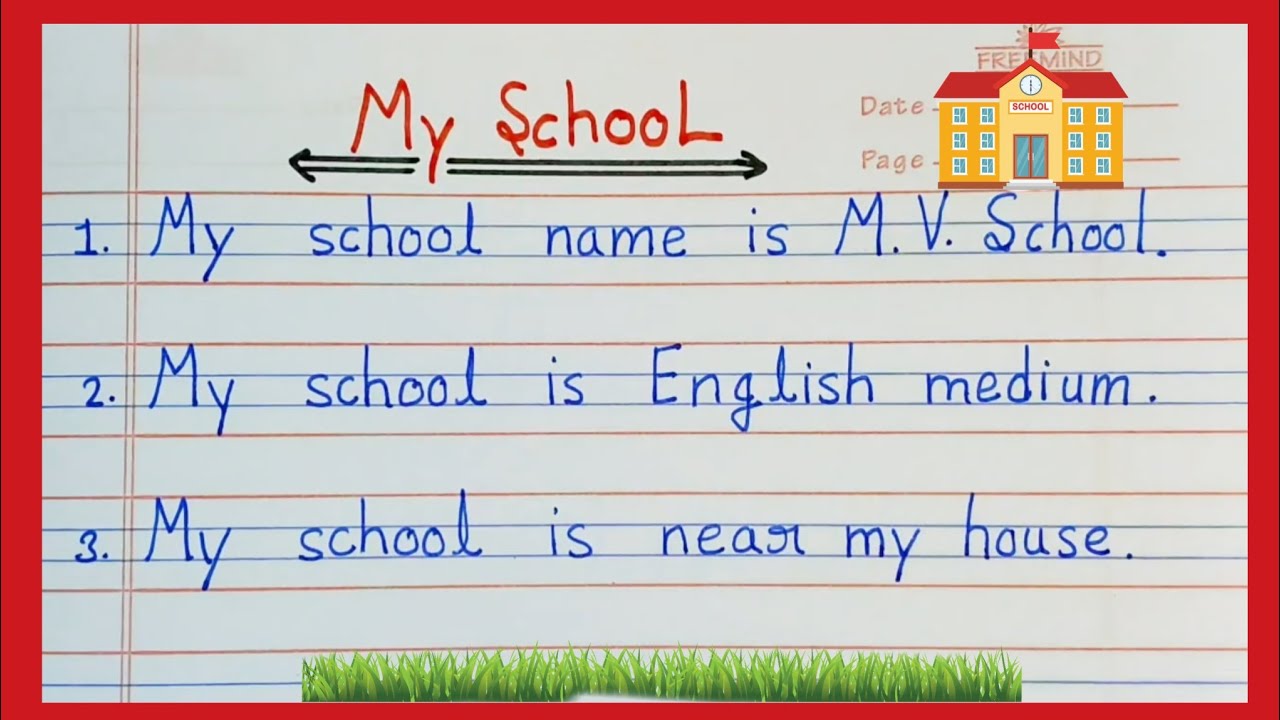 FREEMIND
My School
Date
SCHOOL
Page
1. My school name is M. V. School.
2. My school is English medium.
3. My school is near my house.